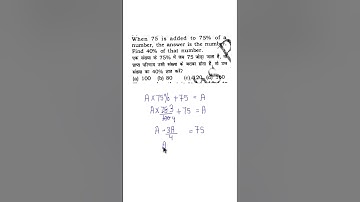 When 75 is added to 75% of a
number, the answer is the number
Find 40% of that number.
एक संख्या के 75% में जब 75 जोड़ा जाता है,
संख्या का 40% ज्ञात करें?
(a) 100 (b) 80 (c) 120
A × 75% + 75 = A
A × 75 3 / 100 4 + 75 = A
A - 3A/4 = 75
A